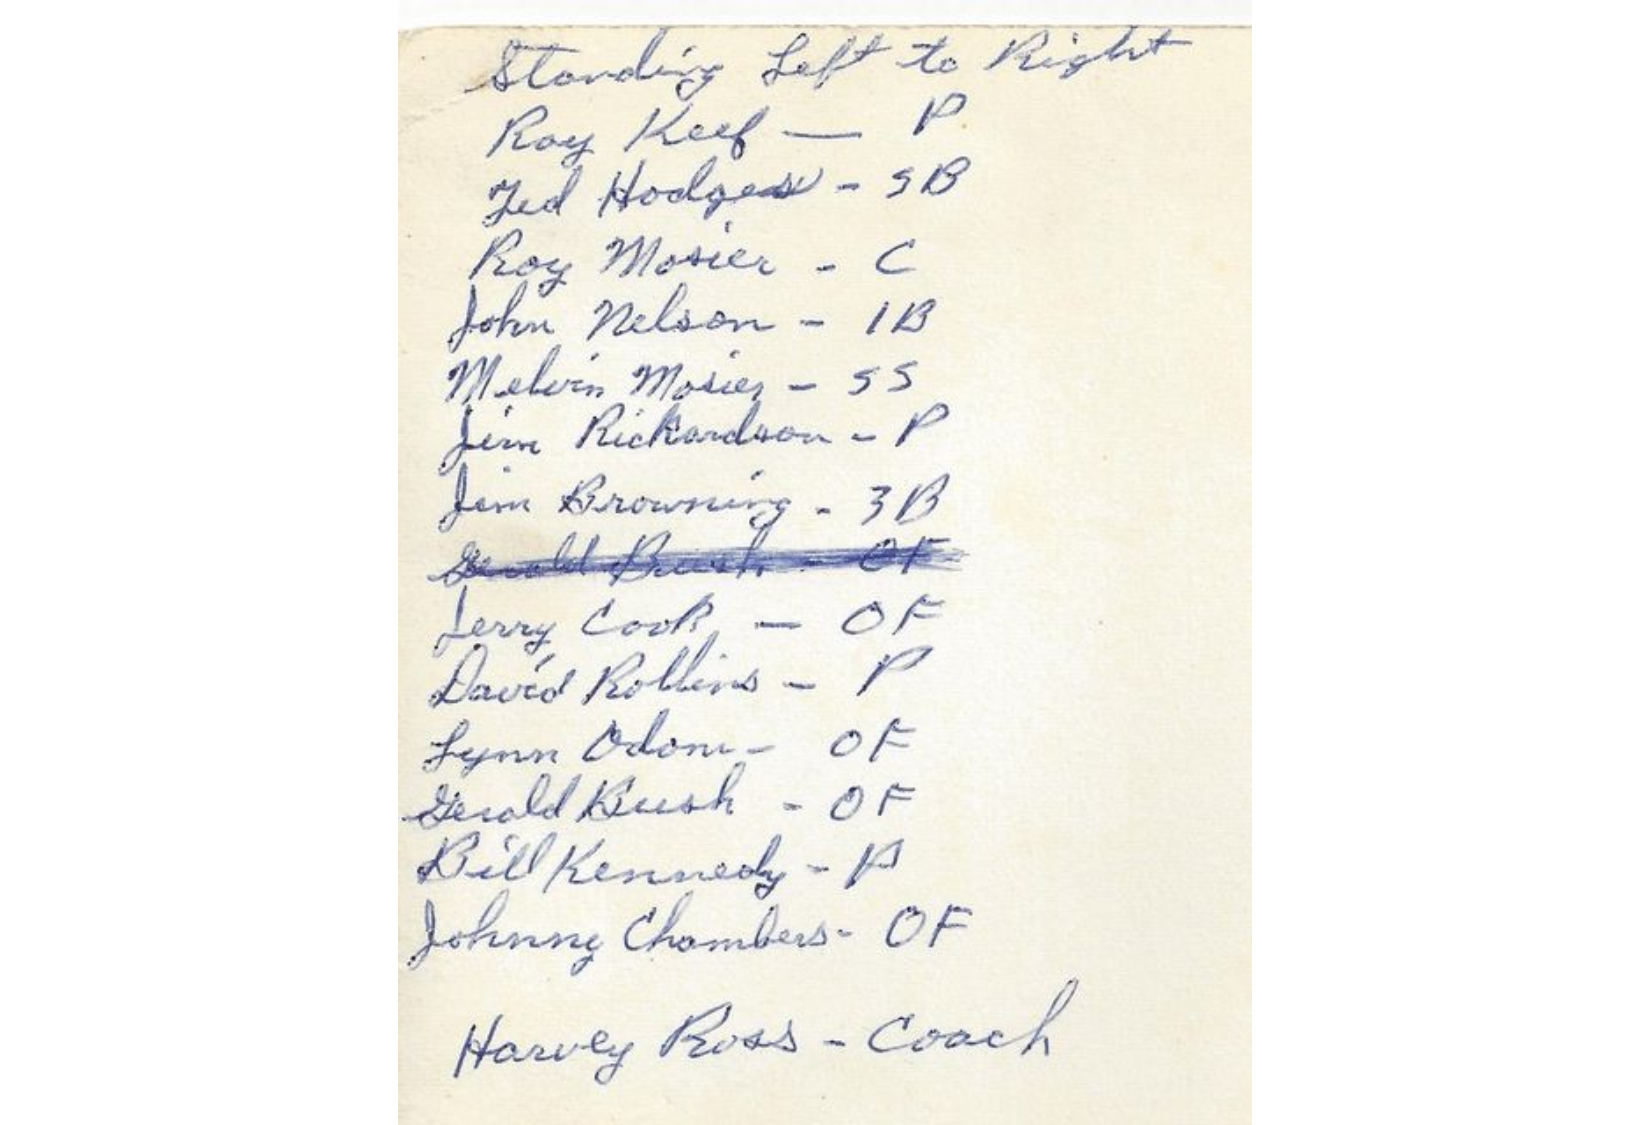 Standing Left to Right
Roy Keef — P
Ted Hodges - SB
Roy Mosier - C
John Nelson - 1B
Melvin Mosier - SS
Jim Richardson - P
Jim Browning - 3B
Gerald Bush - OF
Jerry Cook — OF
David Rollins - P
Lynn Odom - OF
Gerald Bush - OF
Bill Kennedy - P
Johnny Chambers - OF
Harvey Ross - Coach